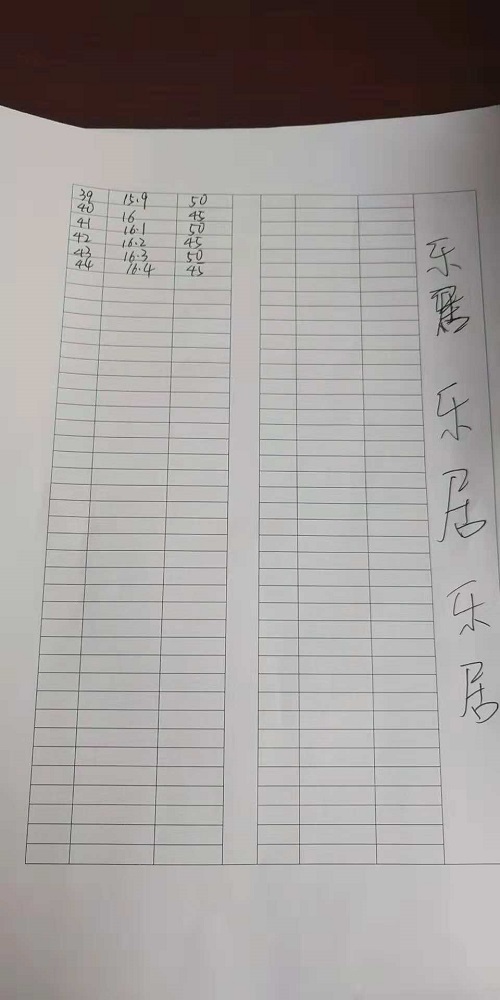 39 15.9 50
40 16 45
41 16.1 50
42 16.2 45
43 16.3 50
44 16.4 45
乐居
乐居
乐居